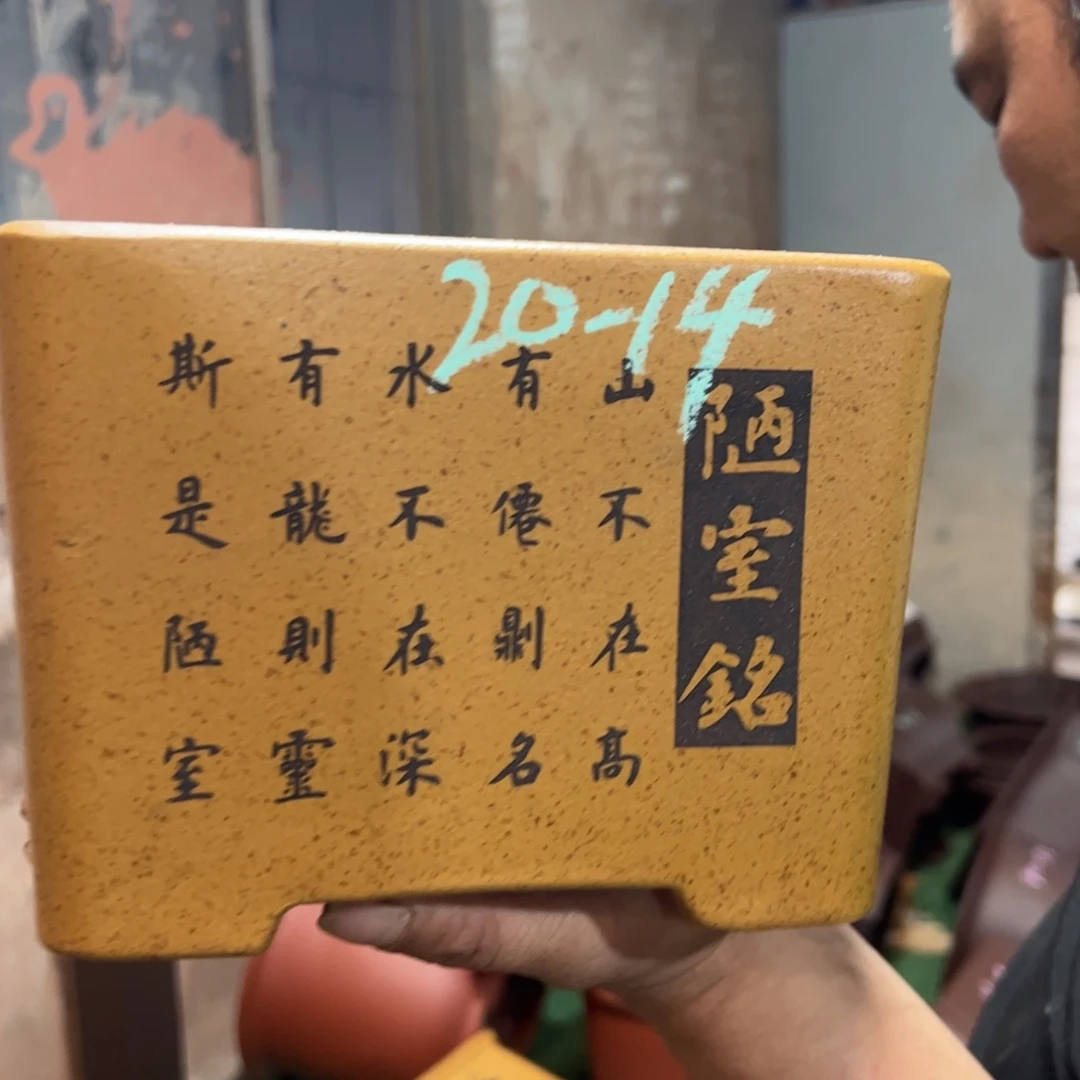 20-14
陋室銘
山不在高
有僊則名
水不在深
有龍則靈
斯是陋室